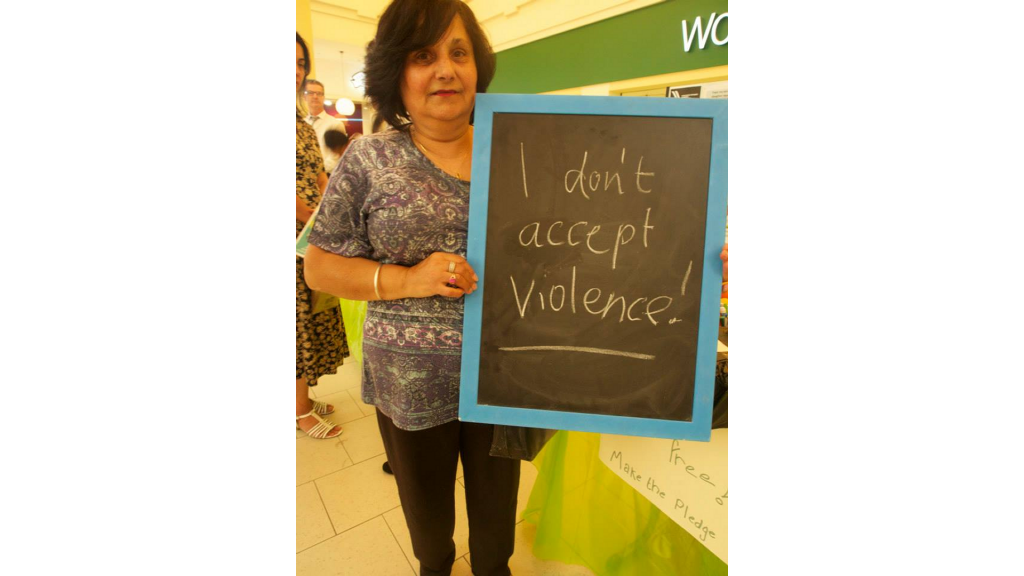 WO
I don't
accept
violence!
Free
Make the Pledge